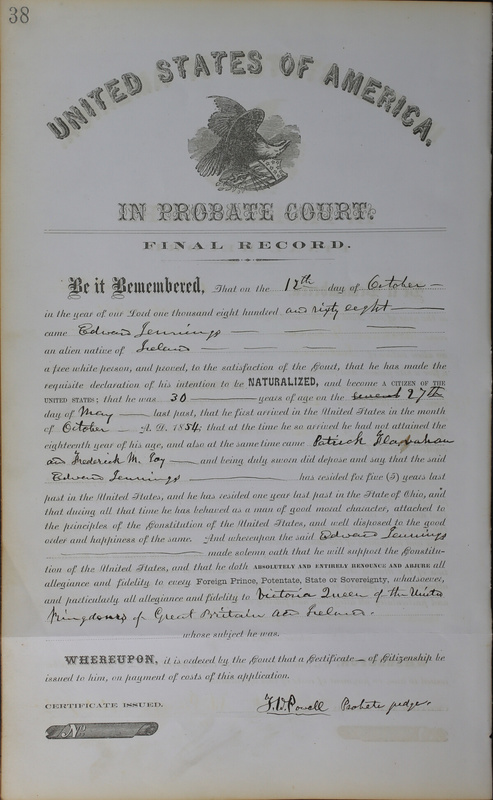 38
UNITED STATES OF AMERICA.
IN PROBATE COURT.
FINAL RECORD.
Be it Remembered, That on the 12th day of October
in the year of our Lord one thousand eight hundred and sixty eight
came Edward Jennings
an alien native of Ireland
a free white person, and proved, to the satisfaction of the Court, that he has made the
requisite declaration of his intention to be NATURALIZED, and become A CITIZEN OF THE
UNITED STATES; that he was 30 years of age on the 27th
day of May last past, that he first arrived in the United States in the month
of October A. D. 1854; that at the time he so arrived he had not attained the
eighteenth year of his age, and also at the same time came Patrick
and Frederick M. and being duly sworn did depose and say that the said
Edward Jennings has resided for five (5) years last
past in the United States, and he has resided one year last past in the State of Ohio, and
that during all that time he has behaved as a man of good moral character, attached to
the principles of the Constitution of the United States, and well disposed to the good
order and happiness of the same. And whereupon the said Edward Jennings
made solemn oath that he will support the Constitu-
tion of the United States, and that he doth ABSOLUTELY AND ENTIRELY RENOUNCE AND ABJURE all
allegiance and fidelity to every Foreign Prince, Potentate, State or Sovereignty, whatsoever,
and particularly all allegiance and fidelity to Victoria Queen of the United
Kingdoms of Great Britain and Ireland.
whose subject he was.
WHEREUPON, it is ordered by the Court that a Certificate of Citizenship be
issued to him, on payment of costs of this application.
CERTIFICATE ISSUED.
Powell Probate judge
No.